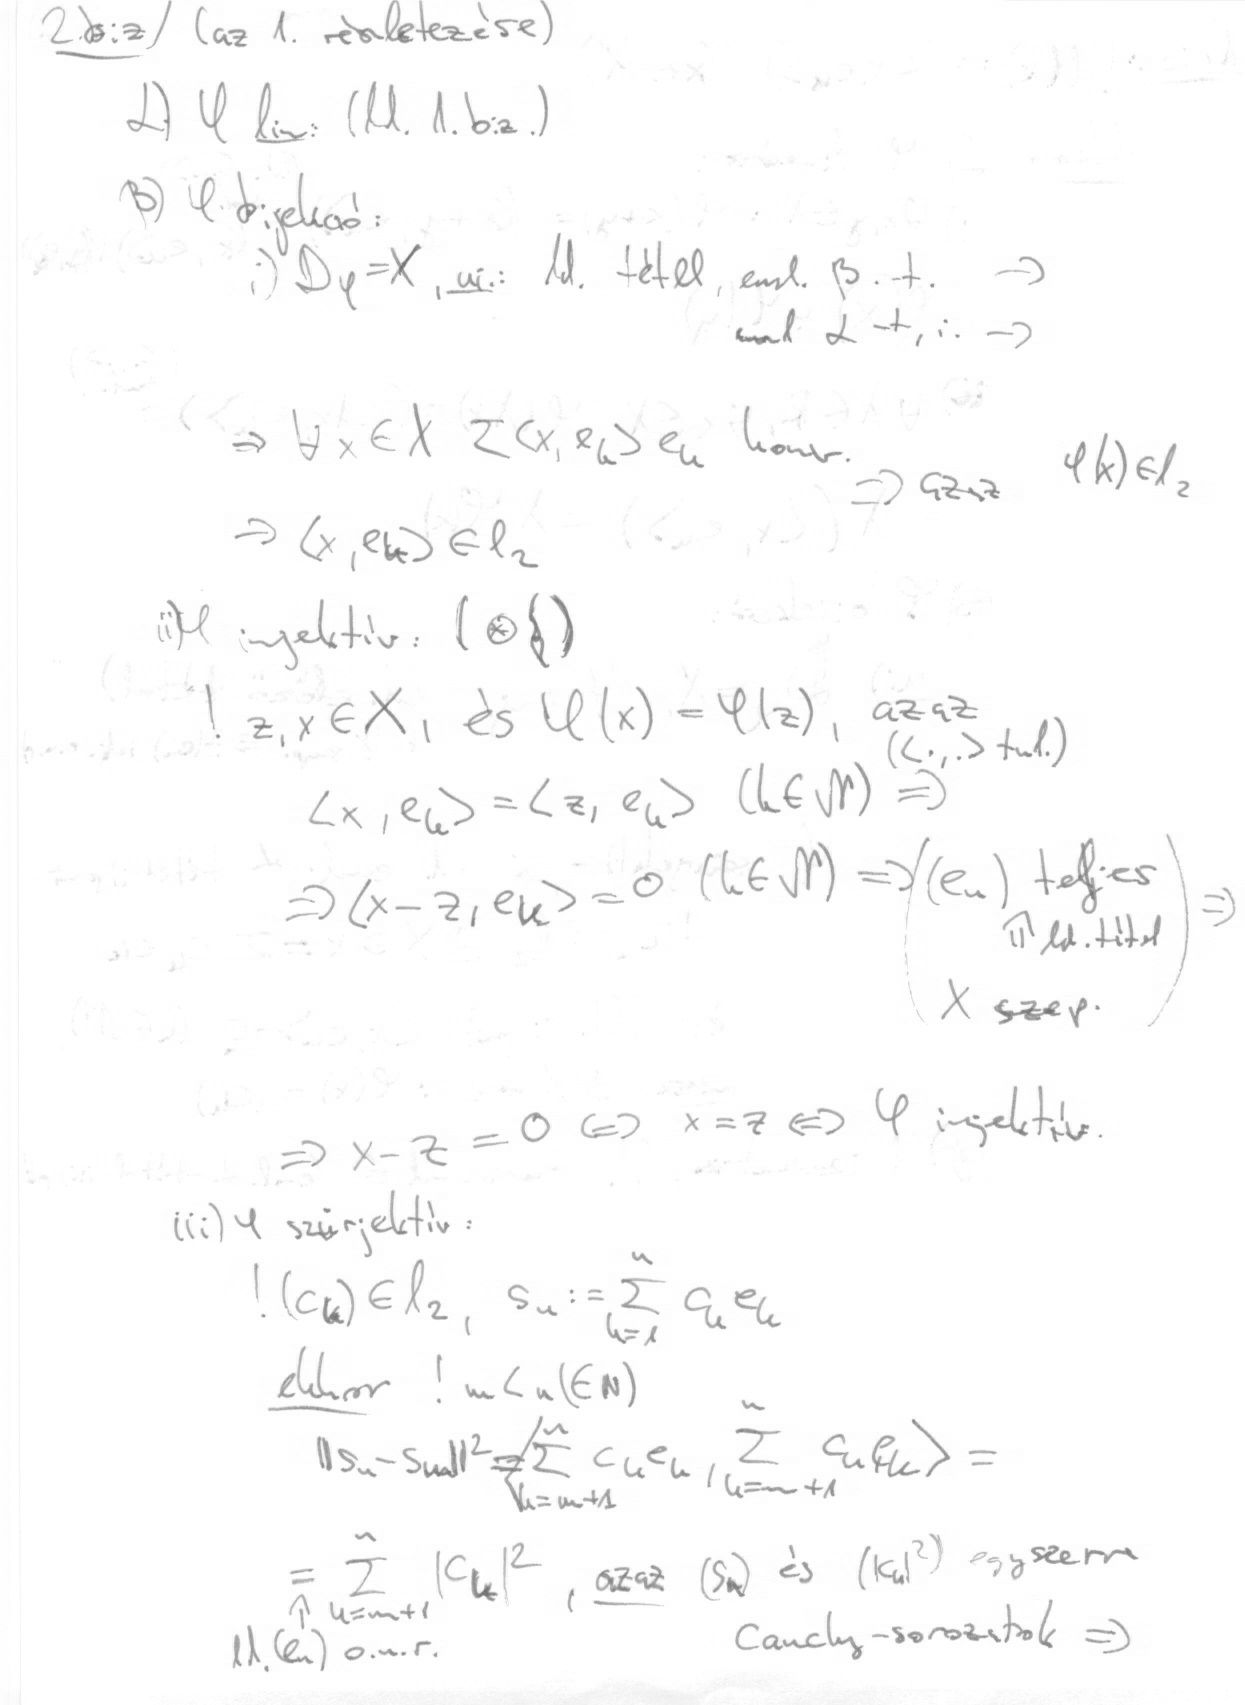 2. biz/ (az 1. részletezése)
α) φ lin.: (ld. 1. biz.)
β) φ bijekció:
i) D_φ = X, ui.: ld. tétel, β. t. →
α → t, i. →
⇒ ∀ x ∈ X Σ<x, e_k> e_k konv.
⇒ azaz φ(x) ∈ l_2
⇒ <x, e_k> ∈ l_2
ii) φ injektív: (⊛{)
! z, x ∈ X, és φ(x) = φ(z), azaz
(<.,.> tul.)
<x, e_k> = <z, e_k> (k ∈ N) ⇒
⇒ <x - z, e_k> = 0 (k ∈ N) ⇒ ((e_n) teljes
⇑ ld. tétel
X szep.) ⇒
⇒ x - z = 0 ⇔ x = z ⇔ φ injektív.
iii) φ szürjektív:
! (c_k) ∈ l_2, s_n := Σ_{k=1}^{n} c_k e_k
ekkor ! m < n (∈ N)
||s_n - s_m||^2 = <Σ_{k=m+1}^{n} c_k e_k, Σ_{k=m+1}^{n} c_k e_k> =
= Σ_{k=m+1}^{n} |c_k|^2, azaz (s_n) és (|c_k|^2) egyszerre
⇑
ld. (e_n) o.n.r. Cauchy-sorozatok ⇒